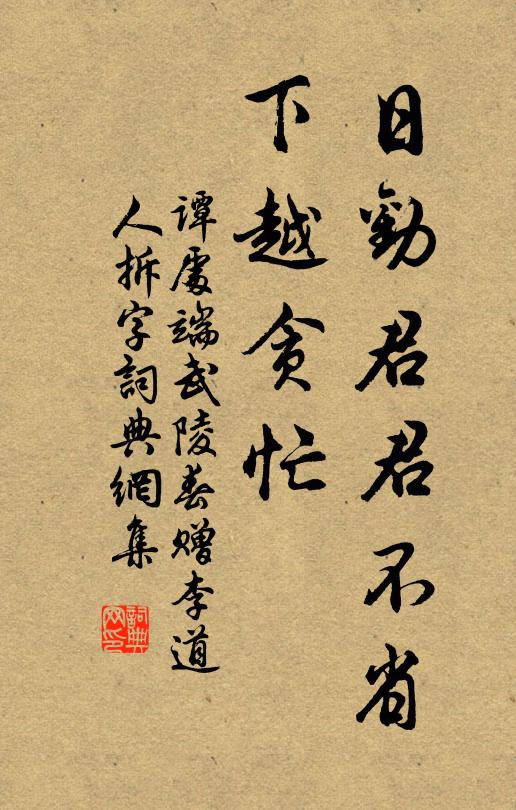 日勸君君不省
下越貪忙
譚處端武陵春贈李道
人拆字詞典網集
詞典
網印